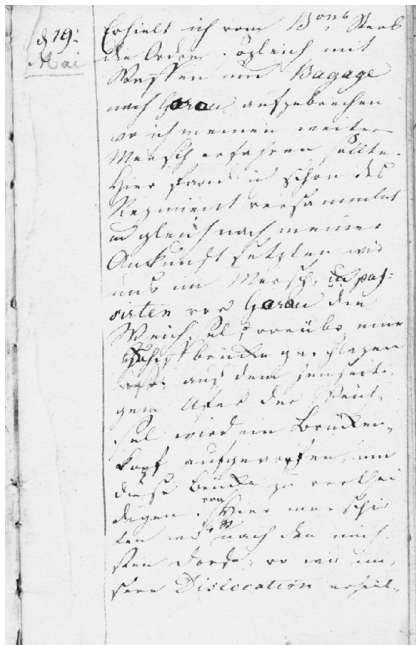 d 19:
Mai
Erhielt ich vom Bons Staab
die Ordre sogleich mit
Waffen und Bagage
nach Gorau aufzubrechen
wo ich meinen weitern
Marsch erfahren sollte.
Hier fand ich schon das
Regiment versammlet
und gleich nach meiner
Ankunft setzten wir
uns in Marsch, u pas-
sirten vor Gorau die
Weichsel, worüber eine
Schiffbrücke geschlagen
war; auf dem jenseiti-
gem Ufer der Weich-
sel wird ein Brücken-
kopf aufgeworfen, um
diese Brücke zu verthei
digen. Hier marschir
ten wir nach den näch-
sten Dorfe, wo wir un-
sere Dislocation erhiel-